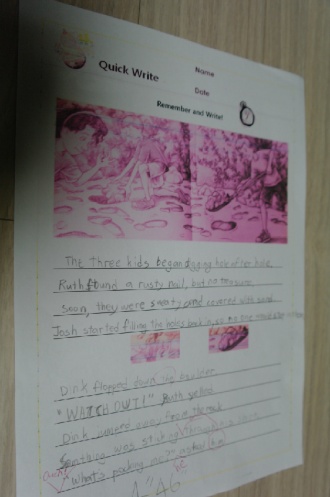 Quick Write
Name
Date
Remember and Write!
The three kids began digging hole after hole.
Ruth found a rusty nail, but no treasure.
Soon, they were sweaty and covered with sand.
Josh started filling the holes back in, so no one would
Dink flopped down
"WATCH OUT!" Ruth yelled.
Dink jumped away from the
Something was sticking through
"What's poking me?"